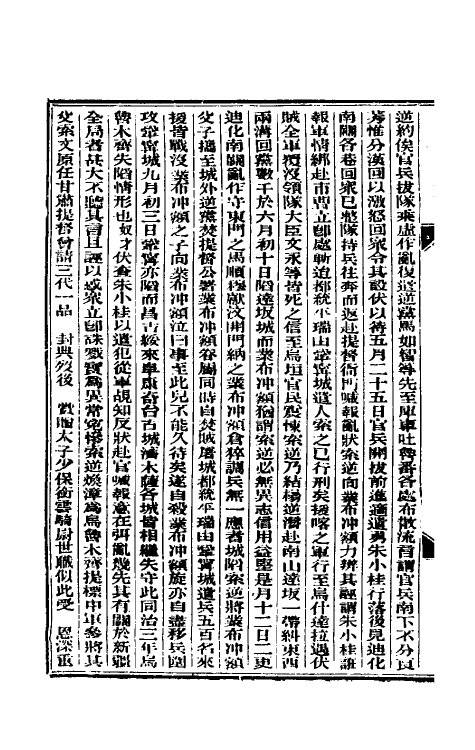 逆約俟官兵拔隊乘虛作亂復遣逆黨馬如等先至庫車吐魯番各處布散流言謂官兵南下不分良
莠惟分漢回以激怒回衆令其設伏以待五月二十五日官兵開拔前進適遣勇朱小桂行落後見迪化
南關各巷回衆已整隊持兵往奔而返赴提督衙門喊報亂狀索逆向業布冲額力辨其誣謂朱小桂誰
報軍情綁赴市曹立卽處斬迨都統平瑞由鞏寧城遣人索之已行刑矣援喀之軍行至烏什達拉遇伏
賊全軍覆沒領隊大臣文永等皆死之信至烏垣官民震悚索逆乃結楊逆潛赴南山達坂一帶糾東西
兩溝回黨數千於六月初十日陷達坂城而業布冲額猶謂索逆必無異志信用益堅是月十二日二更
迪化南關亂作守東門之馬順機獻汶開門納之業布冲額倉猝調兵無一應者城陷索逆將業布冲額
父子拽至城外逆黨焚提督公署業布冲額眷屬同時自焚賊屠城都統平瑞由鞏寧城遣兵五百名來
援皆戰沒業布冲額之子向業布冲額泣曰事至此兒不能久待矣遂自殺業布冲額旋亦自盡移兵圍
攻鞏寧城九月初三日鞏寧亦陷而昌吉綏來阜康奇台古城濟木薩各城皆相繼失守此同治三年烏
魯木齊失陷情形也奴才伏查朱小桂以遣犯從軍覘知反狀赴官喊報意在弭亂幾先其有關於新疆
全局者甚大不聽其言且誣以惑衆立卽誅戮實爲異常寃慘索逆煥漳爲烏魯木齊提標中軍參將其
父索文原任甘肅提督曾請三代一品　封典歿後　賞贈太子少保銜雲騎尉世職似此受　恩深重